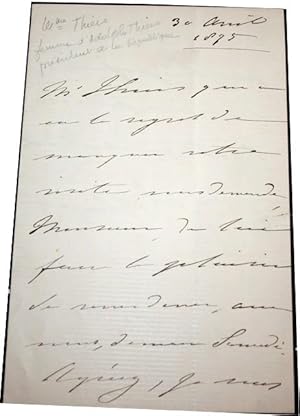 Mme Thiers
femme d'Adolphe Thiers
président de la République
30 Avril
1875
Mr Thiers qui a
eu le regret de
manquer votre
visite vous demande,
Monsieur, de lui
faire le plaisir
de venir dîner, avec
nous, demain Samedi.
Agréez, je vous